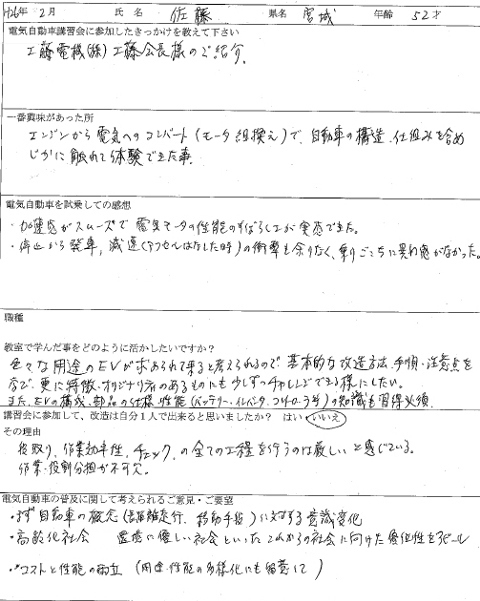 H26年 2月 氏名 佐藤 県名 宮城 年齢 52才
電気自動車講習会に参加したきっかけを教えて下さい
工藤電機(株)工藤会長様のご紹介.
一番興味があった所
エンジンから電気へのコンバート(モータ組換え)で、自動車の構造、仕組みを含め
じかに触れて体験できた事.
電気自動車を試乗しての感想
・加速感がスムーズで電気モータの性能のすばらしさが実感できた。
・停止から発車、減速(アクセルはなした時)の衝撃も余りなく、乗りごこちに異和感がなかった。
職種
教室で学んだ事をどのように活かしたいですか?
色々な用途のEVが求められて来ると考えられるので、基本的な改造方法、手順・注意点を
学び、更に特徴・オリジナリティのあるものにも少しずつチャレンジできる様にしたい。
また、EVの構成、部品の仕様・性能(バッテリー・インバータ、コントローラ等)の知識も習得必須.
講習会に参加して、改造は自分1人で出来ると思いましたか? はい・いいえ
その理由
段取り、作業効率性、チェック、の全ての工程を行うのは厳しいと感じている。
作業・役割分担が不可欠。
電気自動車の普及に関して考えられるご意見・ご要望
・まず自動車の概念(長距離走行、移動手段)に対する意識変化
・高齢化社会 環境に優しい社会といったこれからの社会に向けた優位性をアピール
・コストと性能の両立(用途・性能の多様化にも留意して)